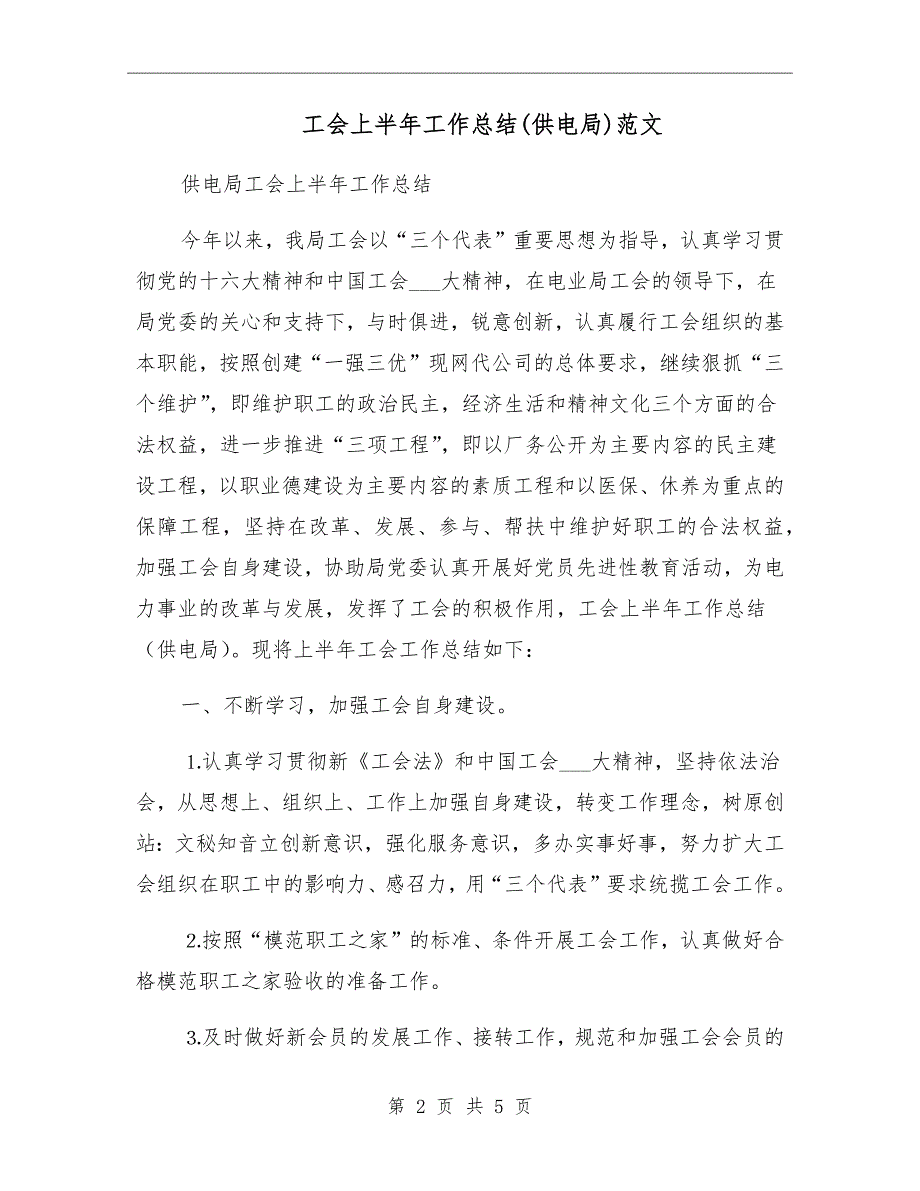 工会上半年工作总结(供电局)范文
供电局工会上半年工作总结
今年以来，我局工会以“三个代表”重要思想为指导，认真学习贯
彻党的十六大精神和中国工会___大精神，在电业局工会的领导下，在
局党委的关心和支持下，与时俱进，锐意创新，认真履行工会组织的基
本职能，按照创建“一强三优”现网代公司的总体要求，继续狠抓“三
个维护”，即维护职工的政治民主，经济生活和精神文化三个方面的合
法权益，进一步推进“三项工程”，即以厂务公开为主要内容的民主建
设工程，以职业德建设为主要内容的素质工程和以医保、休养为重点的
保障工程，坚持在改革、发展、参与、帮扶中维护好职工的合法权益，
加强工会自身建设，协助局党委认真开展好党员先进性教育活动，为电
力事业的改革与发展，发挥了工会的积极作用，工会上半年工作总结
（供电局）。现将上半年工会工作总结如下：
一、不断学习，加强工会自身建设。
1.认真学习贯彻新《工会法》和中国工会___大精神，坚持依法治
会，从思想上、组织上、工作上加强自身建设，转变工作理念，树原创
站：文秘知音立创新意识，强化服务意识，多办实事好事，努力扩大工
会组织在职工中的影响力、感召力，用“三个代表”要求统揽工会工作。
2.按照“模范职工之家”的标准、条件开展工会工作，认真做好合
格模范职工之家验收的准备工作。
3.及时做好新会员的发展工作、接转工作，规范和加强工会会员的
第 2 页 共 5 页